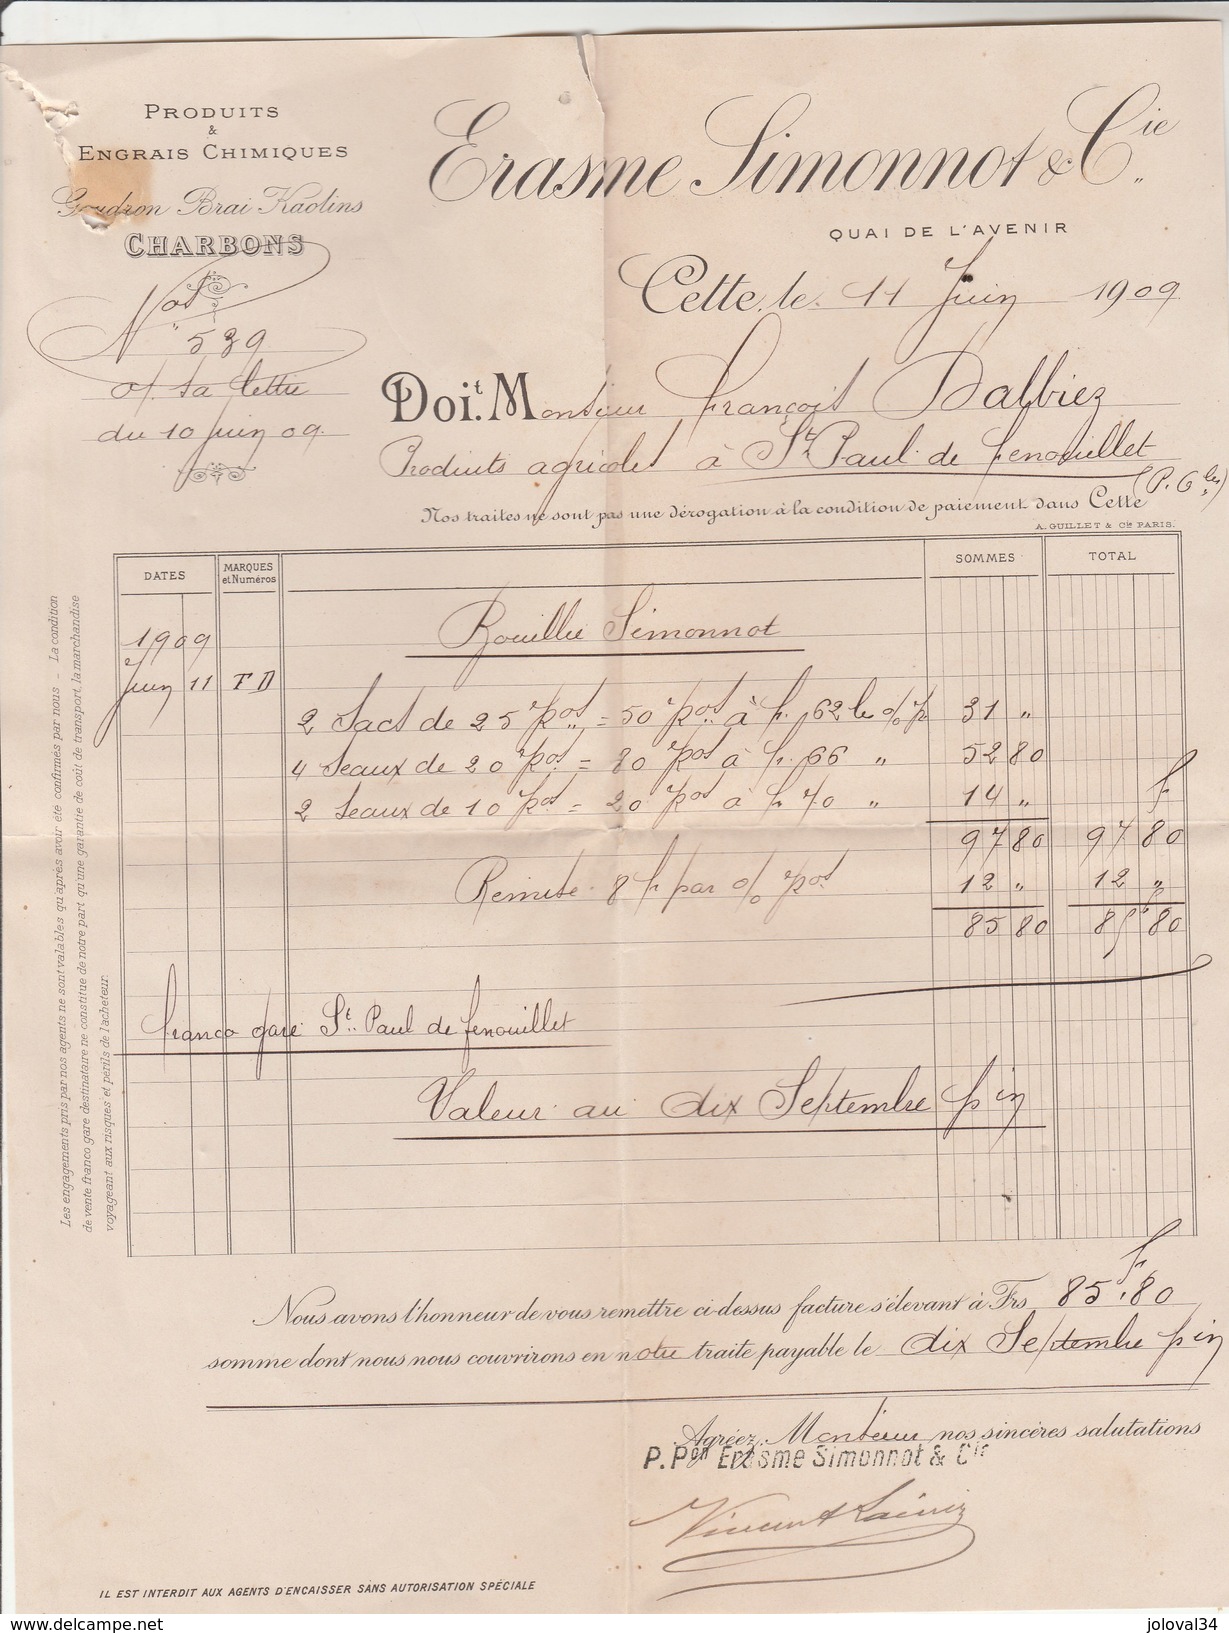 PRODUITS
&
ENGRAIS CHIMIQUES
Goudron Brai Kaolins
CHARBONS
Nos
539
s/ sa lettre
du 10 Juin 09
Erasme Simonnot & Cie
QUAI DE L'AVENIR
Cette, le 11 Juin 1909
Doit. Monsieur François Dalbiez
Produits agricoles à St Paul de Fenouillet
(P. Oles)
Nos traites ne sont pas une dérogation à la condition de paiement dans Cette
A. GUILLET & Cie PARIS.
DATES MARQUES et Numéros SOMMES TOTAL
1909 Bouillie Simonnot
Juin 11 F D
2 Sacs de 25 kos = 50 kos à fr. 62 les % k 31 "
4 Seaux de 20 kos = 80 kos à fr. 66 " 52 80
2 Seaux de 10 kos = 20 kos à fr 70 " 14 " f
97 80 97 80
Remise 8 f par % kos 12 " 12 "
85 80 85 80
franco gare St Paul de fenouillet
Valeur au dix Septembre pin
Les engagements pris par nos agents ne sont valables qu'après avoir été confirmés par nous - La condition
de vente franco gare destinataire ne constitue de notre part qu'une garantie de coût de transport, la marchandise
voyageant aux risques et périls de l'acheteur.
Nous avons l'honneur de vous remettre ci-dessus facture s'élevant à Frs 85 f. 80
somme dont nous nous couvrirons en notre traite payable le dix Septembre pin
Agréez, Monsieur nos sincères salutations
P. Pon Erasme Simonnot & Cie
IL EST INTERDIT AUX AGENTS D'ENCAISSER SANS AUTORISATION SPÉCIALE
www.delcampe.net
joloval34